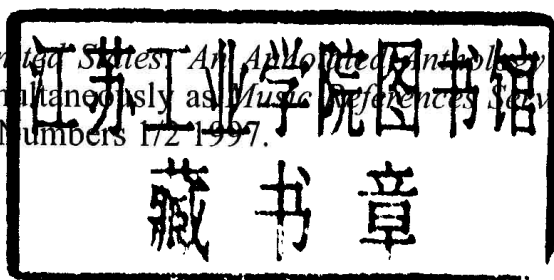 江苏工业学院图书馆
藏书章
ted States: An Annotated Anthology
ultaneously as Music References Serv
Numbers 1/2 1997.